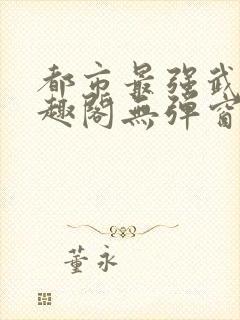 都市最强武
趣阁無弹窗
董永